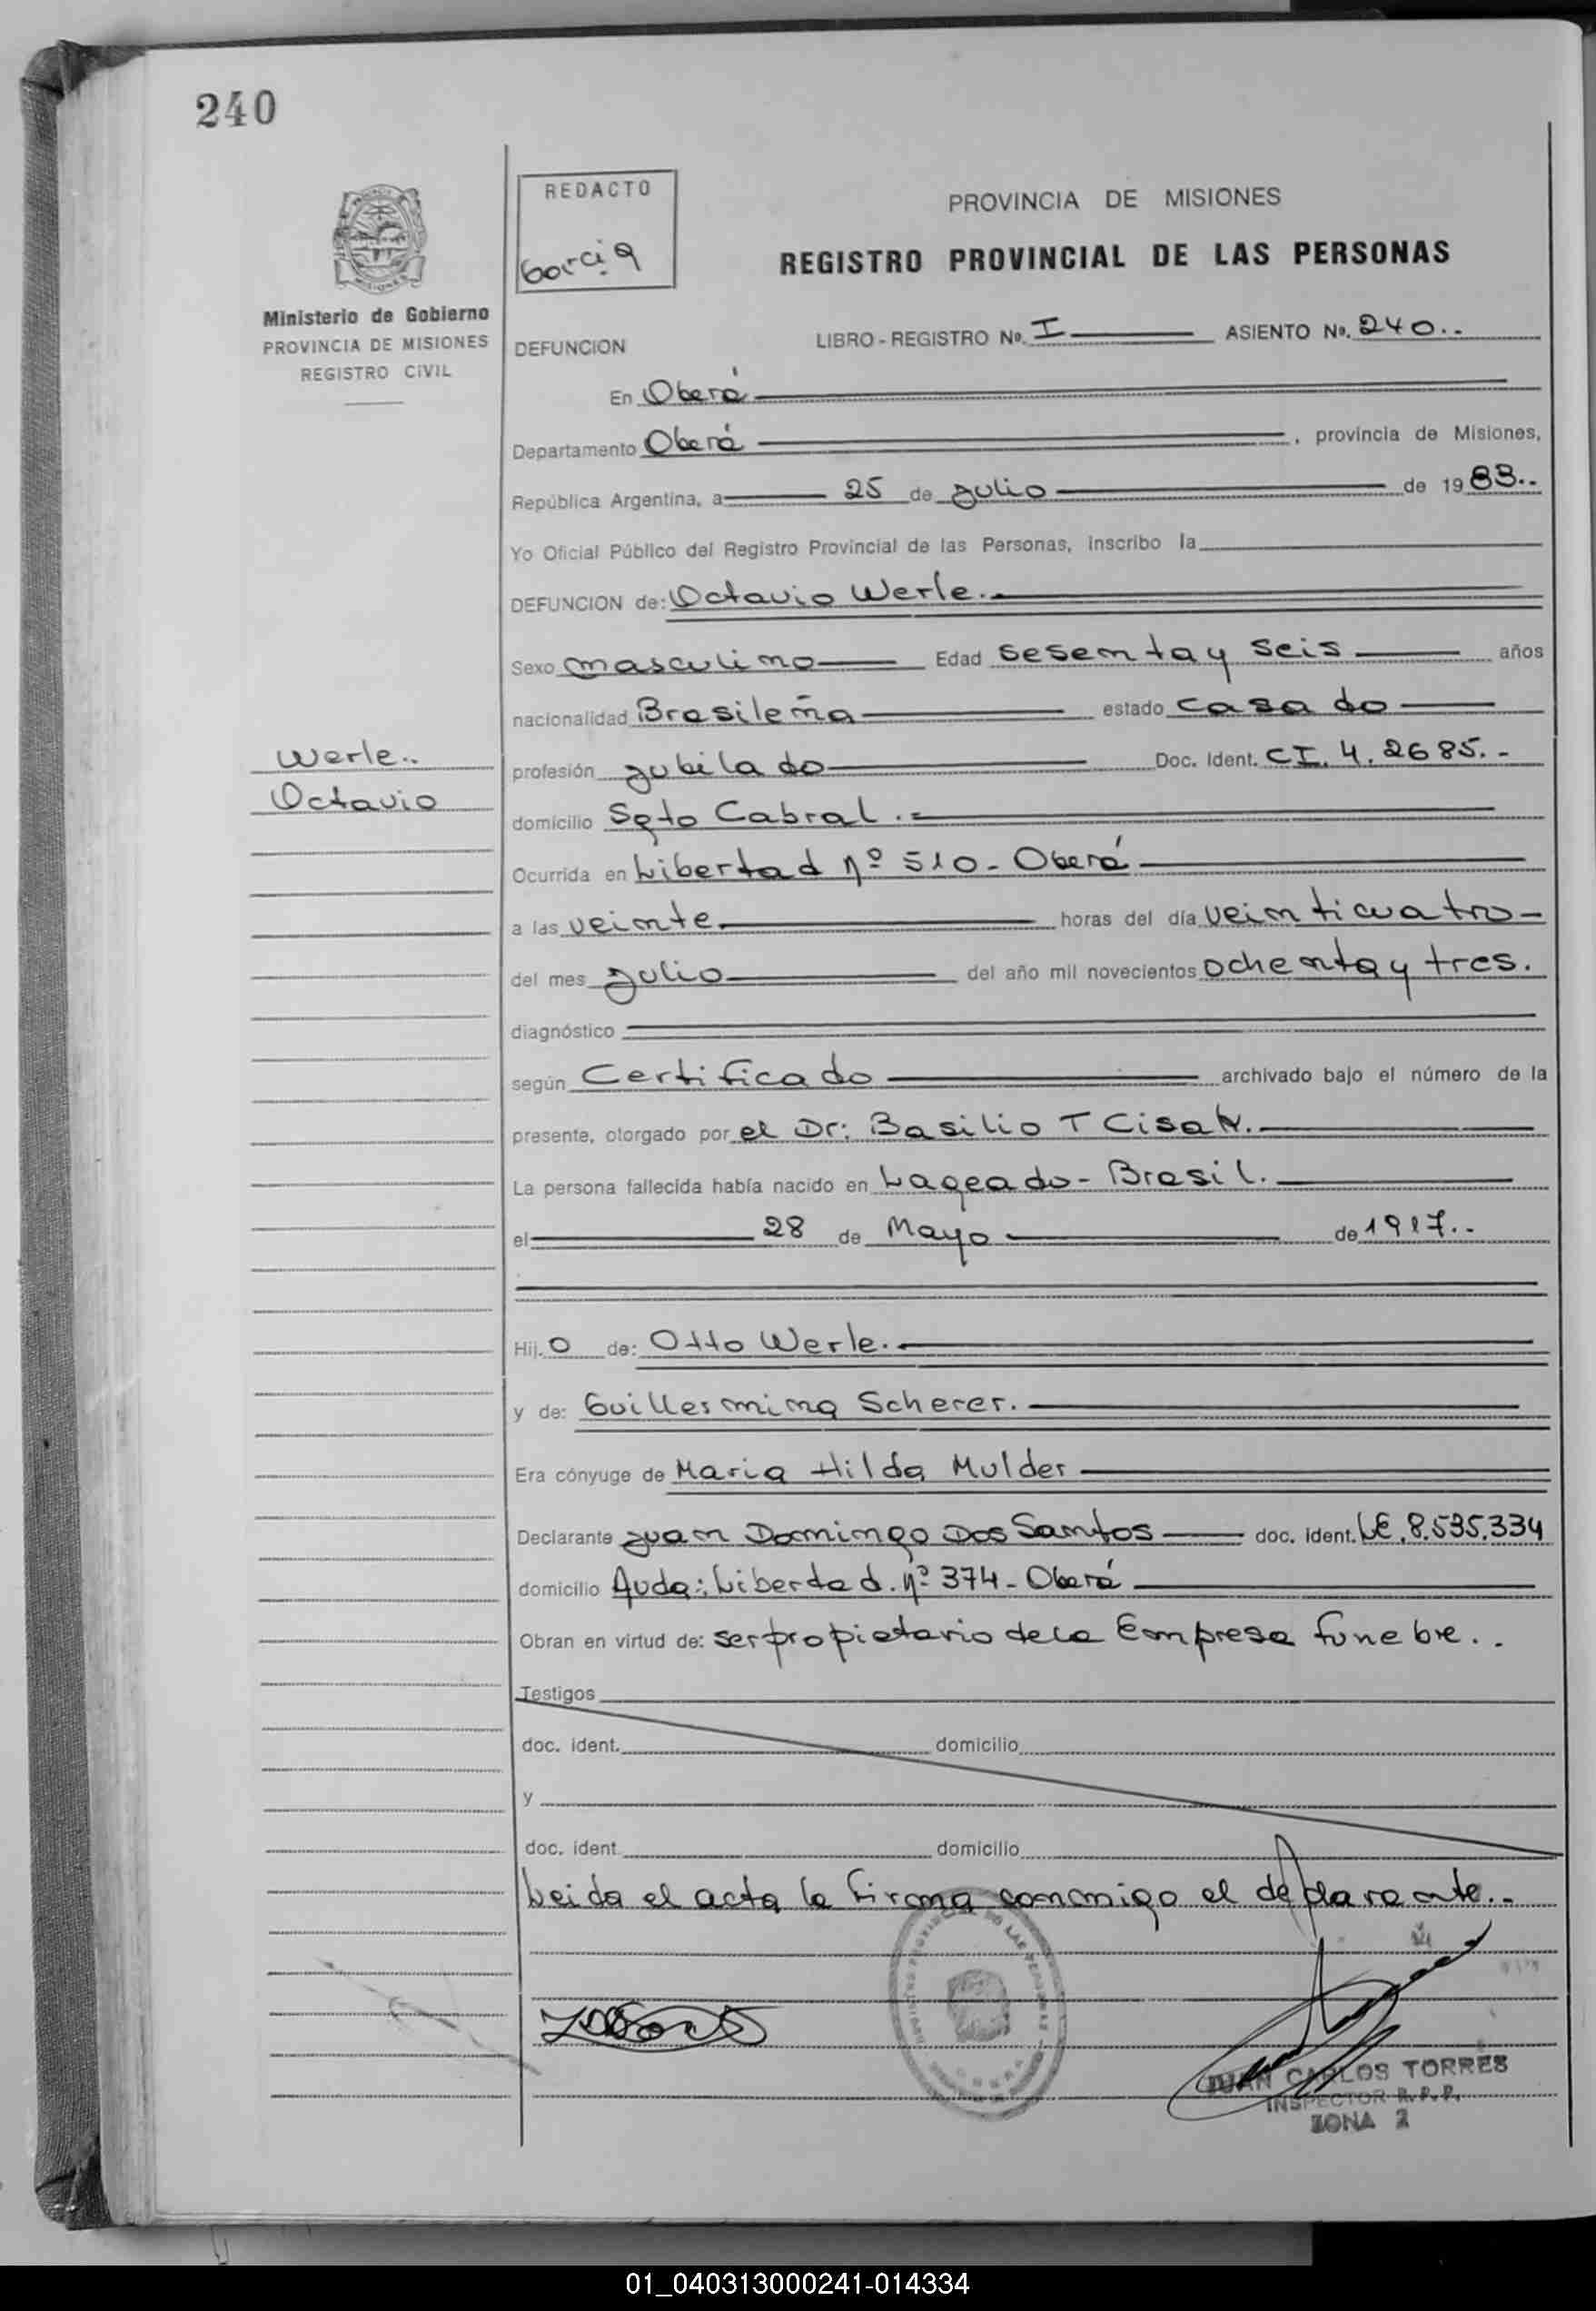 240
REDACTO
Garcia
PROVINCIA DE MISIONES
REGISTRO PROVINCIAL DE LAS PERSONAS
Ministerio de Gobierno
PROVINCIA DE MISIONES
REGISTRO CIVIL
DEFUNCION LIBRO - REGISTRO Nº. I ASIENTO Nº. 240..
En Oberá
Departamento Oberá , provincia de Misiones,
República Argentina, a 25 de Julio de 1983..
Yo Oficial Público del Registro Provincial de las Personas, inscribo la
DEFUNCION de: Octavio Werle.
Sexo masculino Edad sesenta y seis años
nacionalidad Brasileña estado casado
Werle..
Octavio
profesión Jubilado Doc. Ident. CI. 4.2685.-
domicilio Sgto Cabral.
Ocurrida en Libertad nº 510 - Oberá
a las veinte horas del día veinticuatro
del mes Julio del año mil novecientos ochenta y tres.
diagnóstico
según Certificado archivado bajo el número de la
presente, otorgado por el Dr: Basilio T
La persona fallecida había nacido en Lageado - Brasil.
el 28 de Mayo de 1917..
Hij o de: Otto Werle.
y de: Guillermina Scherer.
Era cónyuge de Maria Hilda Mulder
Declarante Juan Domingo Dos Santos doc. ident. LE. 8.535.334
domicilio Avda: Libertad. nº 374 - Oberá
Obran en virtud de: ser propietario de la Empresa funebre..
Testigos
doc. ident. domicilio
y
doc. ident domicilio
Leida el acta la firma conmigo el declarante..
JUAN CARLOS TORRES
INSPECTOR R.P.P.
ZONA 2
01_040313000241-014334